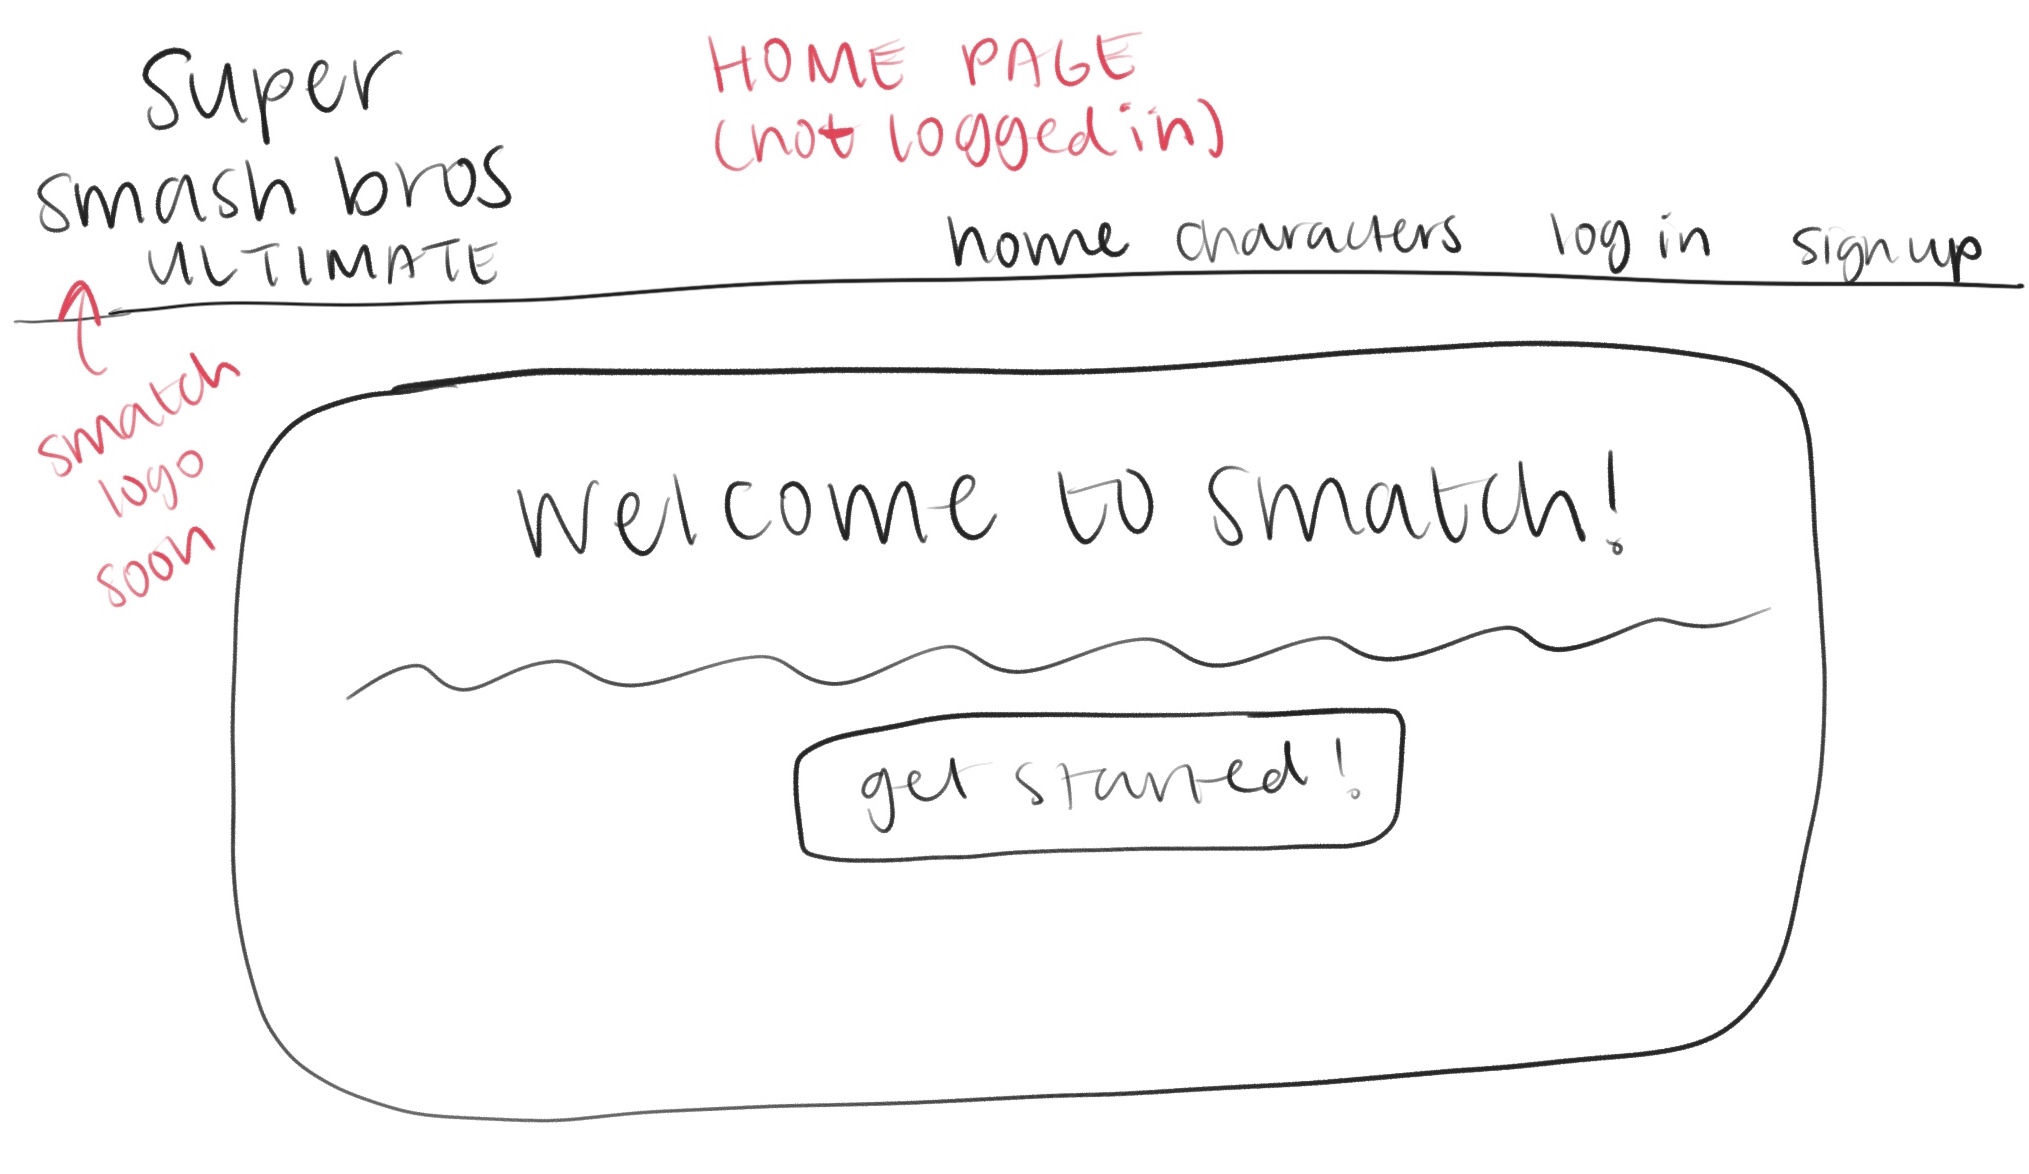 super
smash bros
ULTIMATE
HOME PAGE
(not logged in)
home characters log in sign up
smatch
logo
soon
welcome to smatch!
get started!